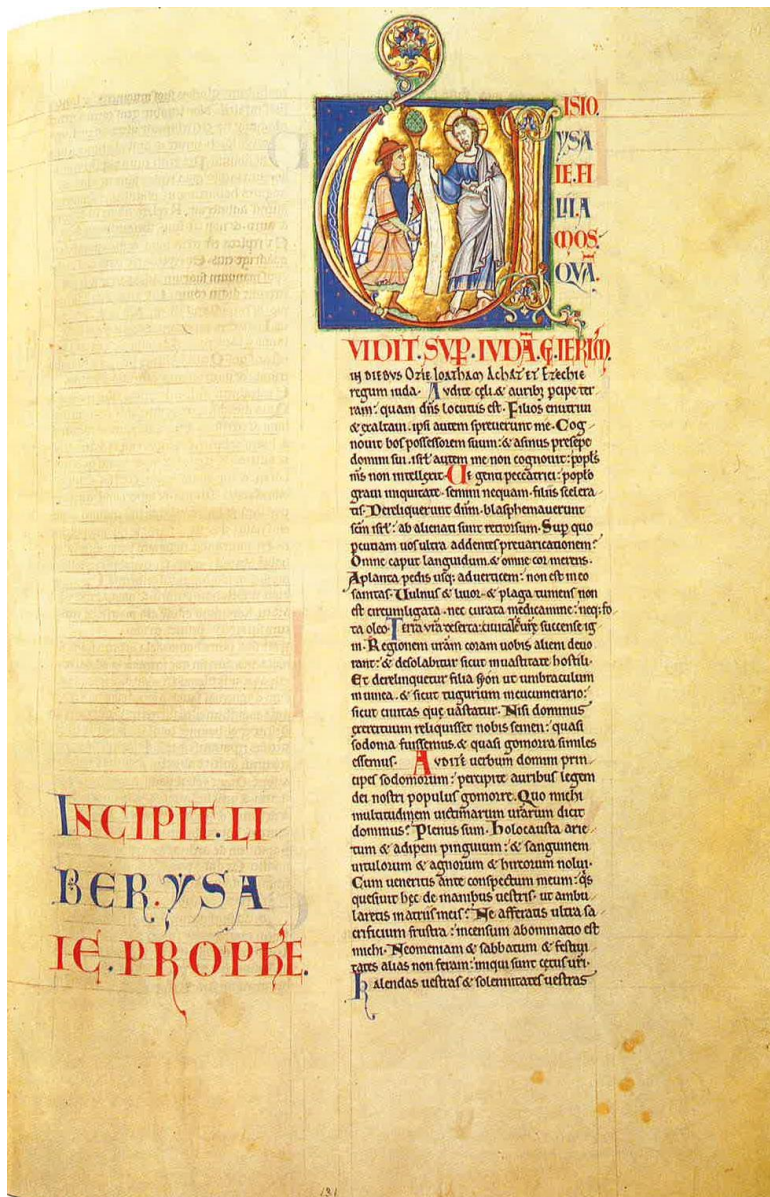 INCIPIT. LI
BER. YSA
IE. PROPHE.
ISIO.
YSA
IE. FI
LII. A
MOS.
QVĀ.
VIDIT. SVP. IVDĀ. ⁊. IERLM̄.
IN DIEBVS OZIE IOATHAM ACHAZ ET Ezechie
regum iuda. Audite celi. & auribꝫ pcipe ter
ram: quam dn̄s locutus est. Filios enutriui
& exaltaui. ipsi autem spreuerunt me. Cog
nouit bos possessorem suum: & asinus presepe
domini sui. isrl̄ autem me non cognouit: popl̄s
ms non intellexit. Ve genti peccatrici: popl̄o
graui iniquitate. semini nequam. filiis scelera
tis. Dereliquerunt dn̄m. blasphemauerunt
scm̄ isrl̄: ab alienati sunt retrorsum. Sup quo
pcutiam uos ultra addentes preuaricationem?
Omne caput languidum. & omne cor merens.
A planta pedis usqꝫ ad uerticem: non est in eo
sanitas. Uulnus & liuor. & plaga tumens non
est circumligata. nec curata medicamine: neqꝫ fo
ta oleo. Terra vr̄a deserta: ciuitates ur̄e succense ig
ni. Regionem ur̄am coram uobis alieni deuo
rant: & desolabitur sicut in uastitate hostili.
Et derelinquetur filia syon ut umbraculum
in uinea. & sicut tugurium in cucumerario:
sicut ciuitas que uastatur. Nisi dominus
exercituum reliquisset nobis semen: quasi
sodoma fuissemus. & quasi gomorra similes
essemus. AVDITE uerbum domini prin
cipes sodomorum: percipite auribus legem
dei nostri populus gomorre. Quo michi
multitudinem uictimarum ur̄arum dicit
dominus? Plenus sum. Holocausta arie
tum & adipem pinguium: & sanguinem
uitulorum & agnorum & hircorum nolui.
Cum ueneritis ante conspectum meum: qis
quesiuit hec de manibus uestris. ut ambu
laretis in atriis meis? Ne afferatis ultra sa
crificium frustra: incensum abominatio est
michi. Neomeniam & sabbatum & festiui
tates alias non feram: iniqui sunt cetus ur̄i.
Kalendas uestras & solennitates uestras